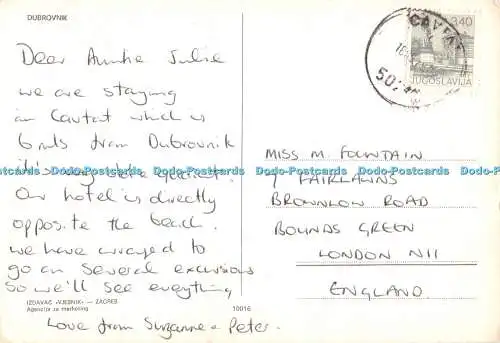 DUBROVNIK
Dear Auntie Julie
we are staying
in Cavtat which is
6 mls from Dubrovnik
it's very
Our hotel is directly
opposite the beach.
we have arranged to
go on several excursions
so we'll see everything
Love from Suzanne + Peter.
IZDAVAČ »VJESNIK« — ZAGREB
Agencija za marketing
10016
3.40
JUGOSLAVIJA
CAVTAT
MISS M. FOUNTAIN
7 FAIRLAWNS
BROWNLOW ROAD
BOUNDS GREEN
LONDON N11
ENGLAND.
Dodo-Postcards Dodo-Postcards Dodo-Postcards Dodo-Postcards